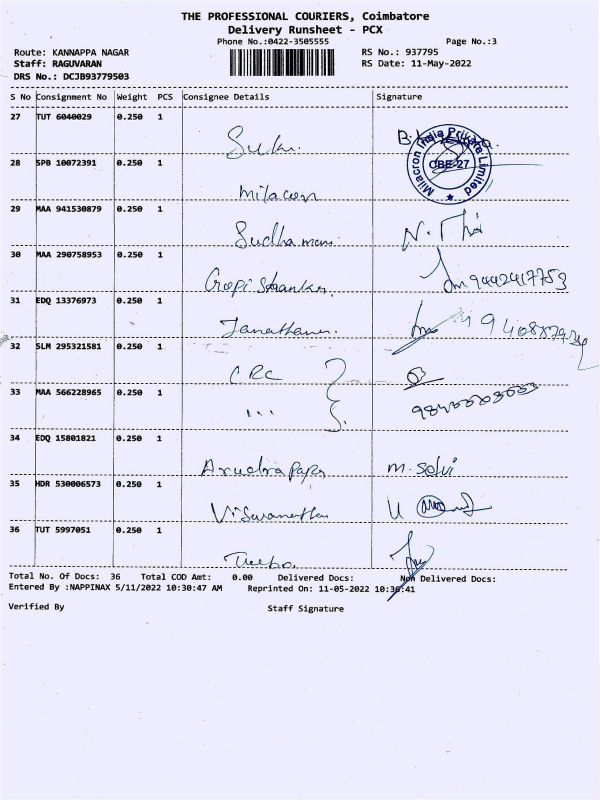 THE PROFESSIONAL COURIERS, Coimbatore
Delivery Runsheet - PCX
Phone No.:0422-3505555
Page No.:3
Route: KANNAPPA NAGAR
RS No.: 937795
Staff: RAGUVARAN
RS Date: 11-May-2022
DRS No.: DCJB93779503
S No Consignment No Weight PCS Consignee Details Signature
27 TUT 6040029 0.250 1
Milacron India Private Limited
CBE-27
28 SPB 10072391 0.250 1 Milacron
29 MAA 941530879 0.250 1 Sudhamani
30 MAA 290758953 0.250 1 Gopi Shankar. 9442417753
31 EDQ 13376973 0.250 1
32 SLM 295321581 0.250 1 CRC
33 MAA 566228965 0.250 1 "
34 EDQ 15801821 0.250 1 Arudra Paper M. Selvi
35 HDR 530006573 0.250 1 Viswanathan
36 TUT 5997051 0.250 1
Total No. Of Docs: 36 Total COD Amt: 0.00 Delivered Docs: Non Delivered Docs:
Entered By :NAPPINAX 5/11/2022 10:30:47 AM Reprinted On: 11-05-2022 10:30:41
Verified By Staff Signature